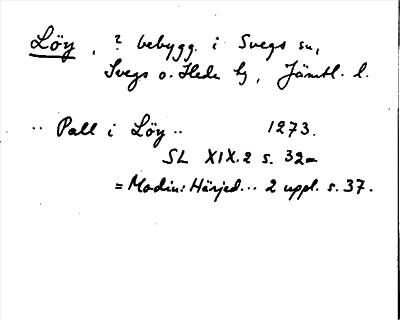 Löy, ? bebygg. i Svegs sn,
Svegs o. Hede tg, Jämtl. l.
.. Pall i Löy .. 1273.
SL XIX.2 s. 32 =
= Modin: Härjed... 2 uppl. s. 37.